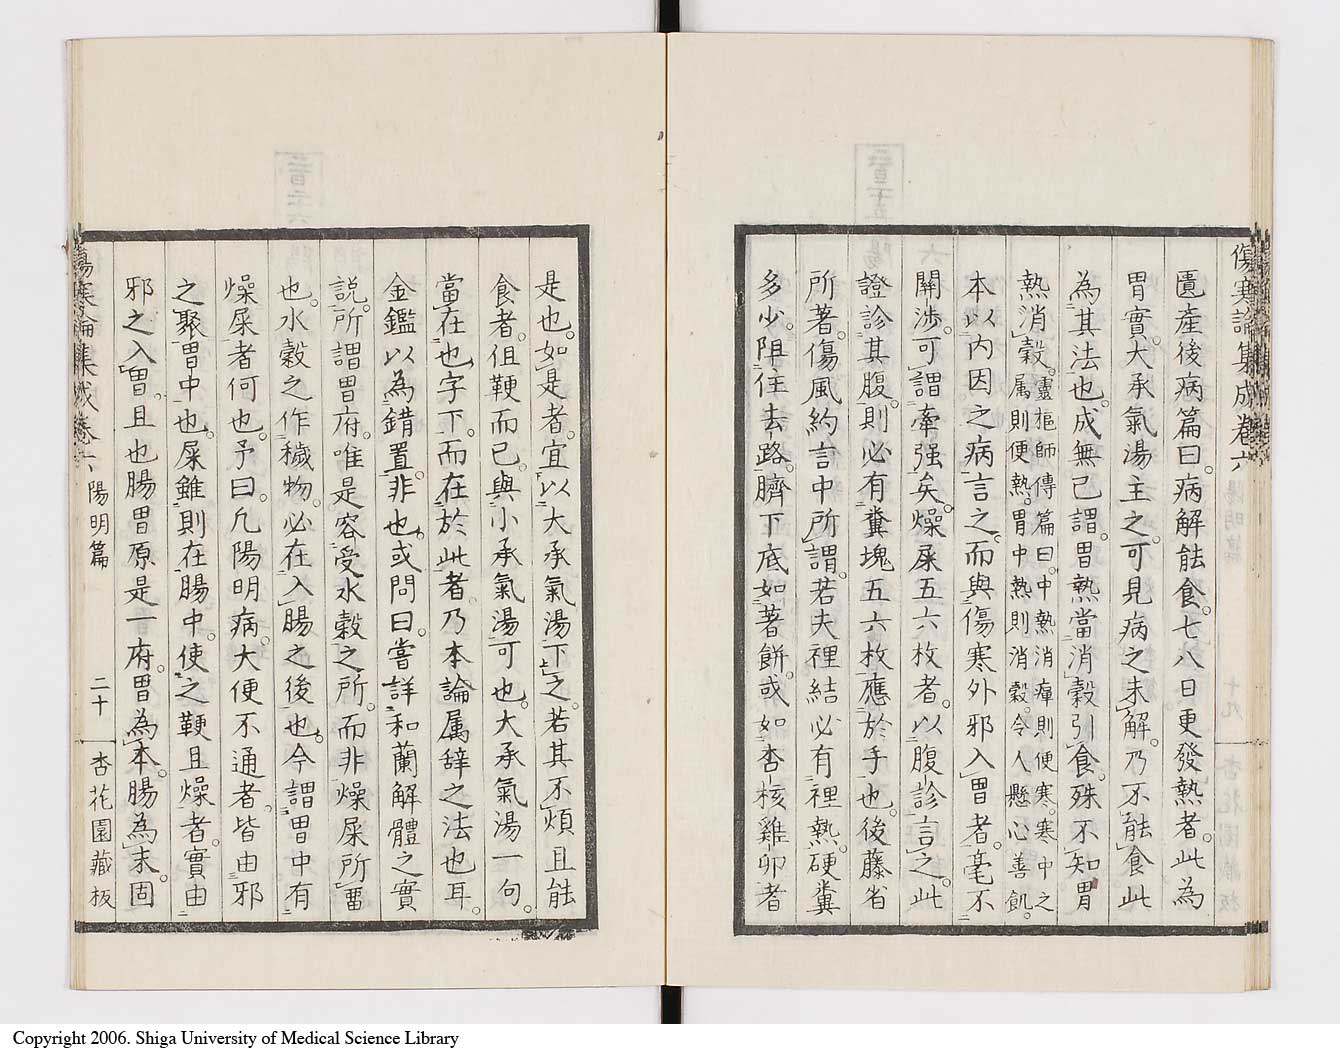 傷寒論集成卷六
匱產後病篇曰。病解能食。七八日更發熱者。此為
胃實。大承氣湯主之。可見病之未解。乃不能食此
為其法也。成無己謂。胃熱當消穀引食。殊不知胃
熱消穀。靈樞師傳篇曰。中熱消癉則便寒。寒中之
属則便熱。胃中熱則消穀。令人懸心善飢。
本以内因之病言之。而與傷寒外邪入胃者。毫不
關涉。可謂牽强矣。燥屎五六枚者。以腹診言之。此
證診其腹。則必有糞塊五六枚應於手也。後藤省
所著。傷風約言中所謂。若夫裡結必有裡熱。硬糞
多少。阻住去路。臍下底如著餅。或如杏核雞卵者
是也。如是者。宜以大承氣湯下之。若其不煩且能
食者。但鞕而已。與小承氣湯可也。大承氣湯一句。
當在也字下。而在於此者。乃本論属辞之法也耳。
金鑑以為錯置。非也。或問曰。嘗詳和蘭解體之實
説。所謂胃府。唯是容受水穀之所。而非燥屎所畱
也。水穀之作穢物。必在入腸之後也。今謂胃中有
燥屎者何也。予曰。凡陽明病。大便不通者。皆由邪
之聚胃中也。屎雖則在腸中。使之鞕且燥者。實由
邪之入胃。且也腸胃原是一府。胃為本。腸為末。固
傷寒論集成卷六 陽明篇 二十 杏花園藏板
Copyright 2006. Shiga University of Medical Science Library